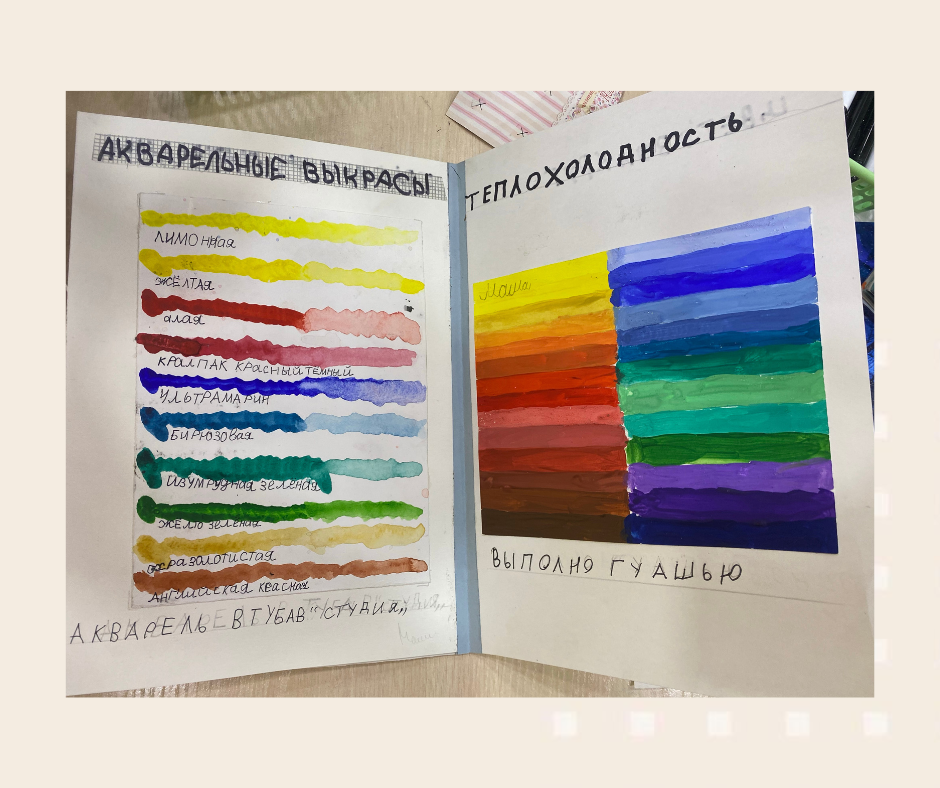 АКВАРЕЛЬНЫЕ ВЫКРАСЫ
ЛИМОННАЯ
ЖЁЛТАЯ
алая
КРАПЛАК КРАСНЫЙ ТЕМНЫЙ
УЛЬТРАМАРИН
БИРЮЗОВАЯ
ИЗУМРУДНАЯ ЗЕЛЁНАЯ
ЖЕЛТО ЗЕЛЕНАЯ
ЗОЛОТИСТАЯ
АНГЛИЙСКАЯ КРАСНАЯ
АКВАРЕЛЬ В ТУБАВ "СТУДИЯ"
ТЕПЛОХОЛОДНОСТЬ
Маша
ВЫПОЛНО ГУАШЬЮ